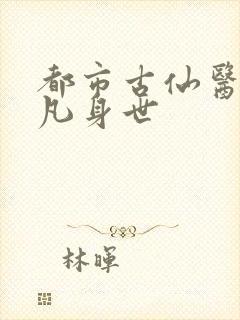 都市古仙醫
凡身世
林暉